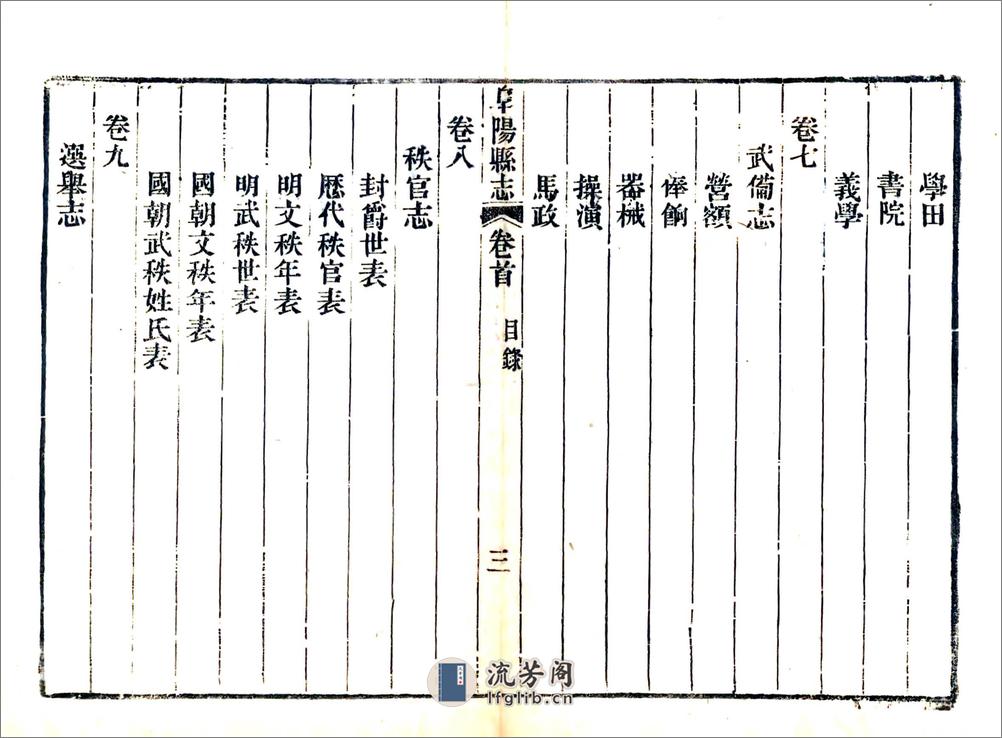 學田
書院
義學
卷七
武備志
營額
俸餉
器械
操演
馬政
阜陽縣志 卷首 目錄 三
卷八
秩官志
封爵世表
歷代秩官表
明文秩年表
明武秩世表
國朝文秩年表
國朝武秩姓氏表
卷九
選舉志
流芳阁
lfglib.cn